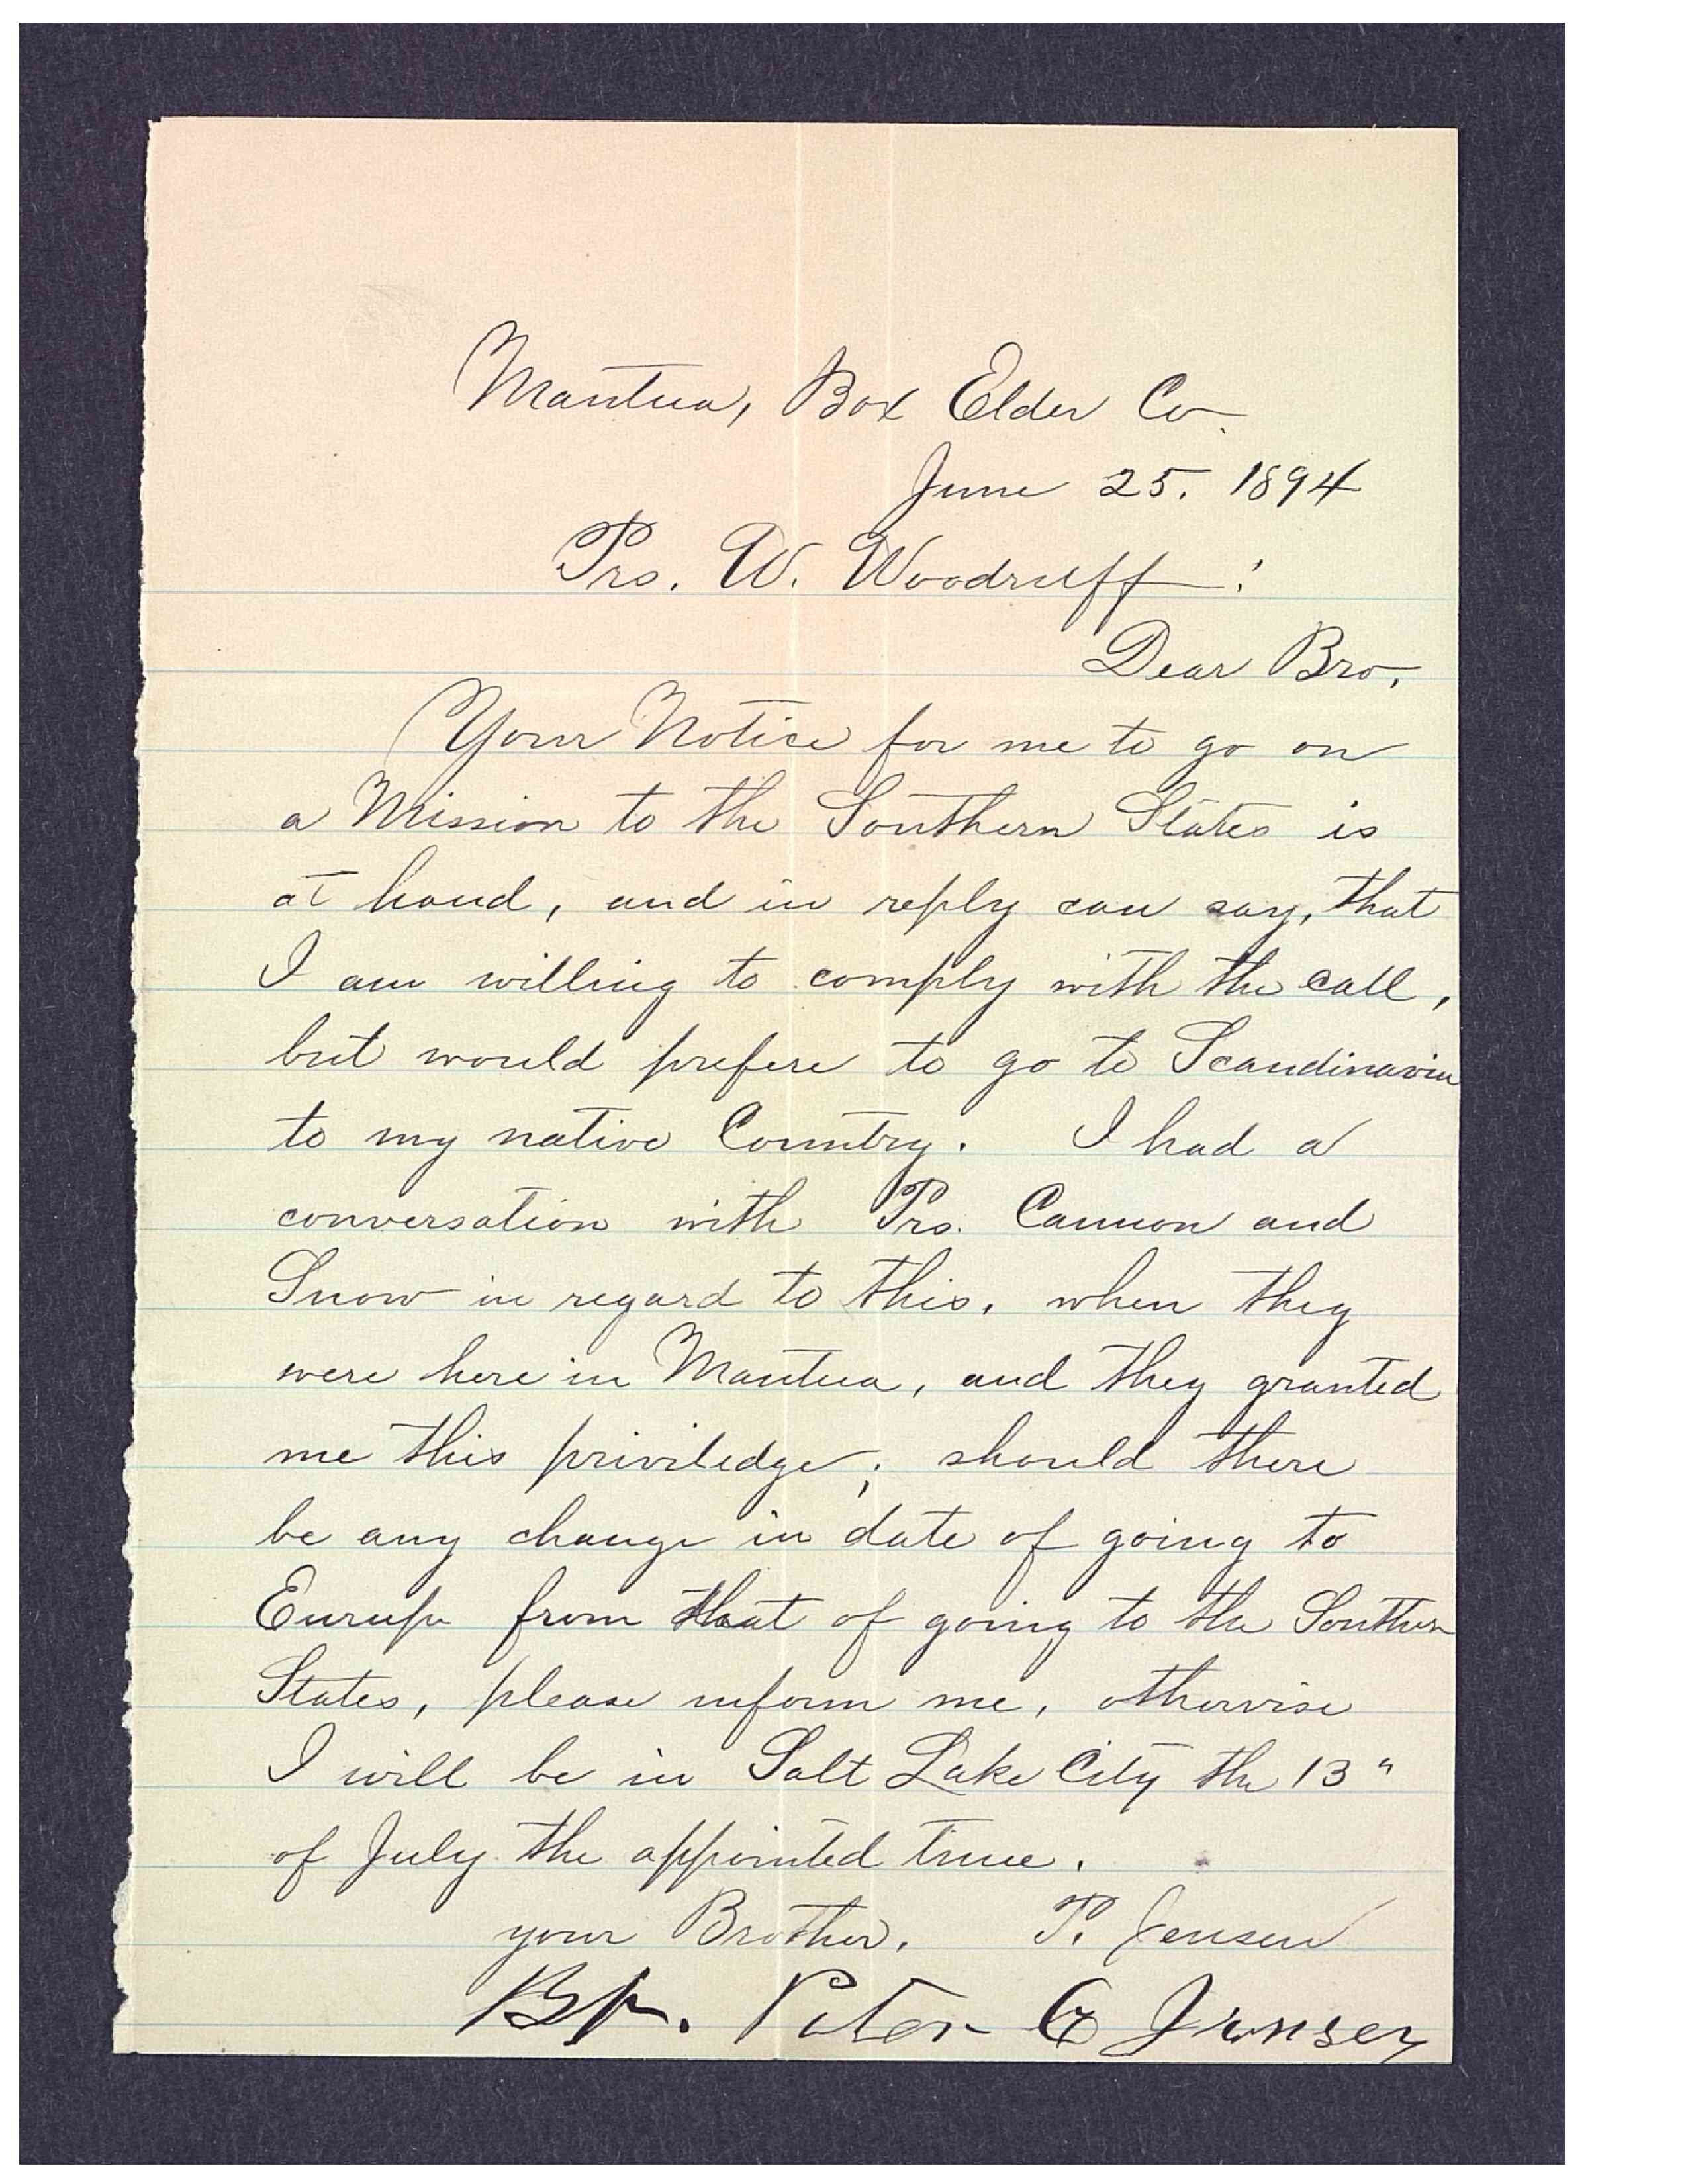 Mantua, Box Elder Co.
June 25. 1894
Prs. W. Woodruff:
Dear Bro,
Your Notice for me to go on
a Mission to the Southern States is
at hand, and in reply can say, that
I am willing to comply with the call,
but would prefere to go to Scandinavia
to my native Country. I had a
conversation with Prs. Cannon and
Snow in regard to this, when they
were here in Mantua, and they granted
me this priviledge; should there
be any change in date of going to
Europe from that of going to the Southern
States, please inform me, otherwise
I will be in Salt Lake City the 13"
of July the appointed time.
your Brother. P. Jensen
Bp. Peter C Jensen